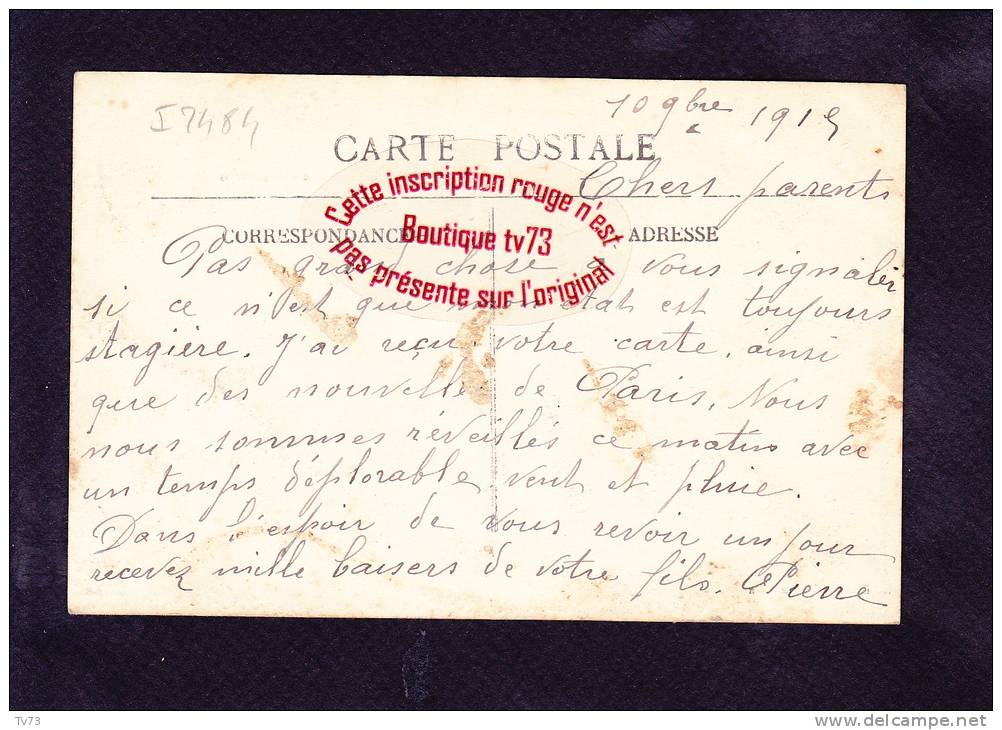 I7484
10 9bre 1915
CARTE POSTALE
Chers parents
Cette inscription rouge n'est
Boutique tv73
pas présente sur l'original
CORRESPONDANCE
ADRESSE
Pas grand chose à vous signaler
si ce n'est que mon état est toujours
stagière. J'ai reçu votre carte, ainsi
que des nouvelle de Paris. Nous
nous sommes réveillés ce matin avec
un temps déplorable, vent et pluie.
Dans l'espoir de vous revoir un jour
recevez mille baisers de votre fils. Pierre
Tv73
delcampe.net